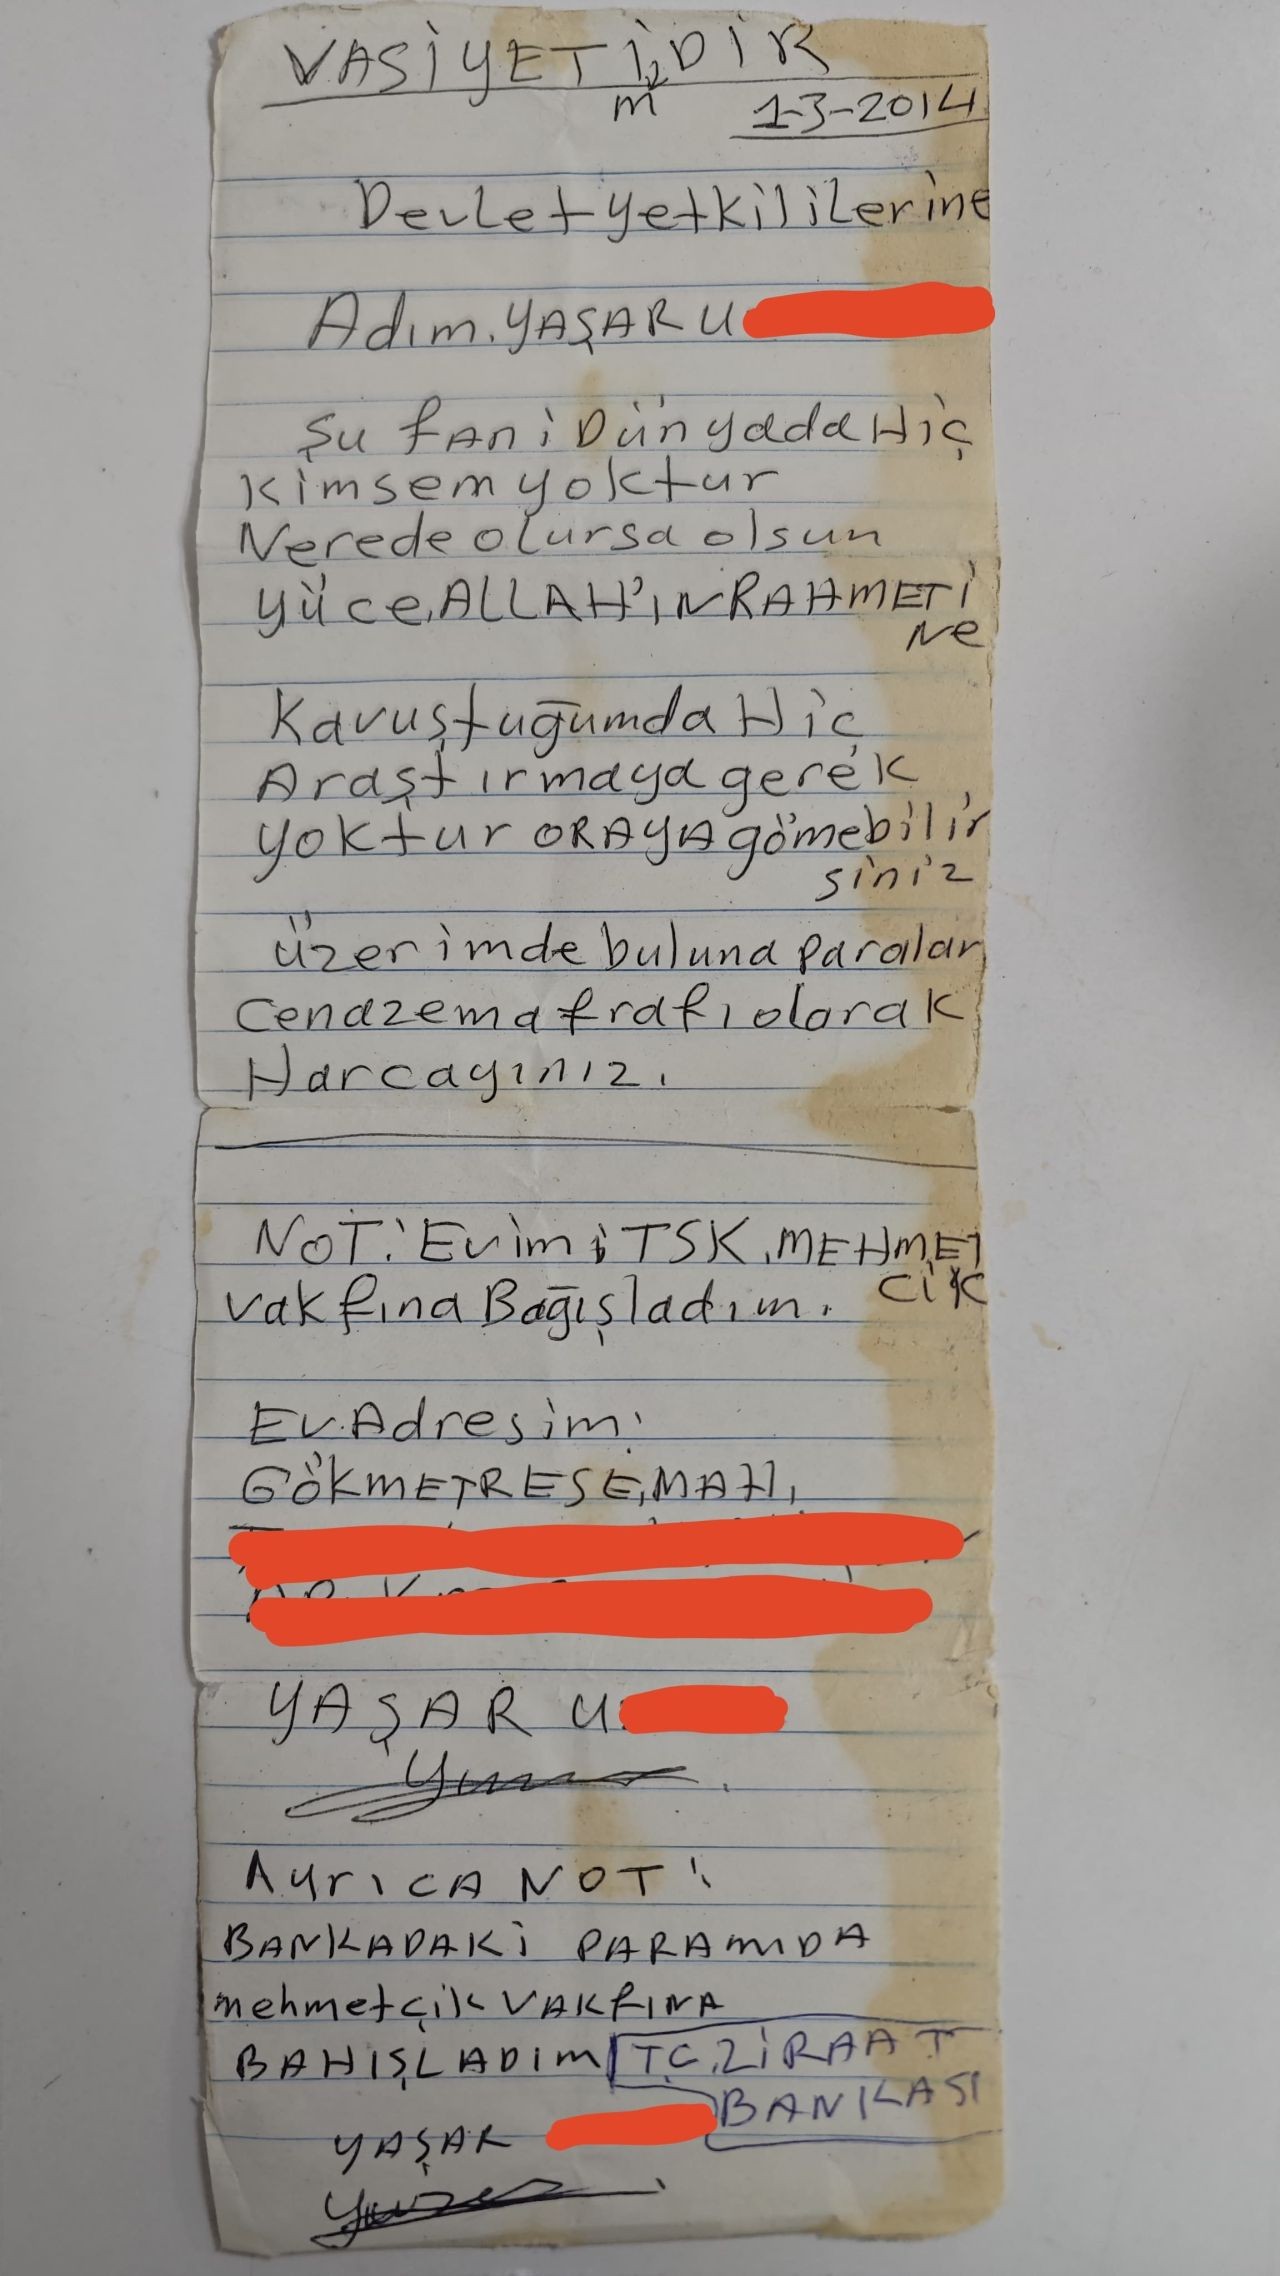 VASİYETİMDİR
1-3-2014
Devlet yetkililerine
Adım. YAŞAR U
Şu fani Dünyada Hiç
kimsem yoktur
Nerede olursa olsun
yüce, ALLAH'IN RAHMETİ
Ne
Kavuştuğumda Hiç
Araştırmaya gerek
yoktur ORAYA gömebilir
siniz
üzerimde buluna paralar
cenazema frafı olarak
Harcayınız.
NOT: Evimi TSK. MEHMET
CİK
vakfına Bağışladım.
Ev. Adresim:
GÖKMETRESE, MAH,
YAŞAR U
Ayrıca NOT:
BANKADAKİ PARAMIDA
mehmetçik VAKFINA
BAHIŞLADIM T.C. ZİRAAT
BANKASI
YAŞAR